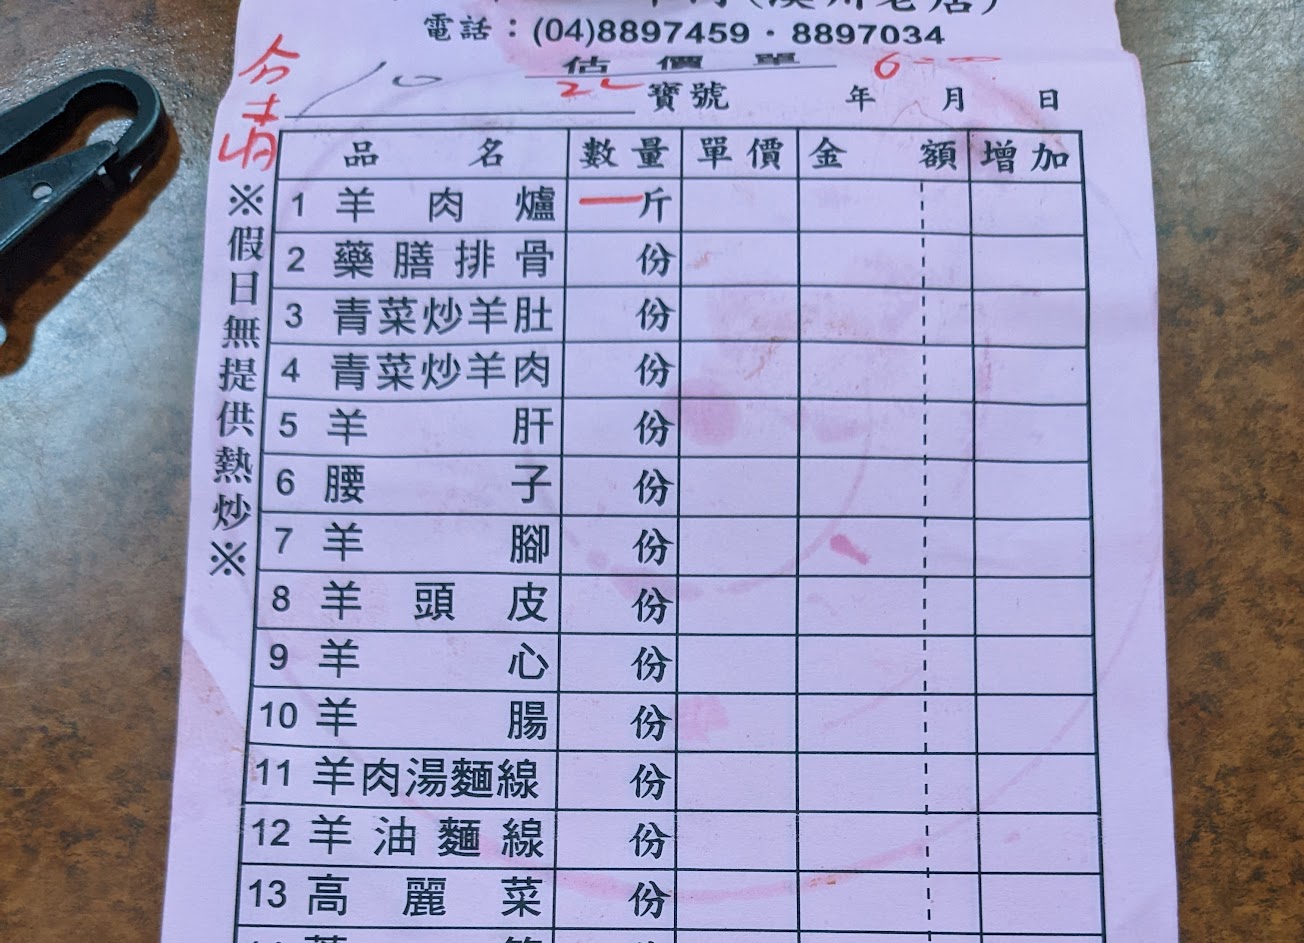 (溪州老店)
電話：(04)8897459・8897034
估價單
寶號 年 月 日
品名 數量 單價 金額 增加
1 羊肉爐 一斤
2 藥膳排骨 份
3 青菜炒羊肚 份
4 青菜炒羊肉 份
5 羊肝 份
6 腰子 份
7 羊腳 份
8 羊頭皮 份
9 羊心 份
10 羊腸 份
11 羊肉湯麵線 份
12 羊油麵線 份
13 高麗菜 份
※假日無提供熱炒※
10